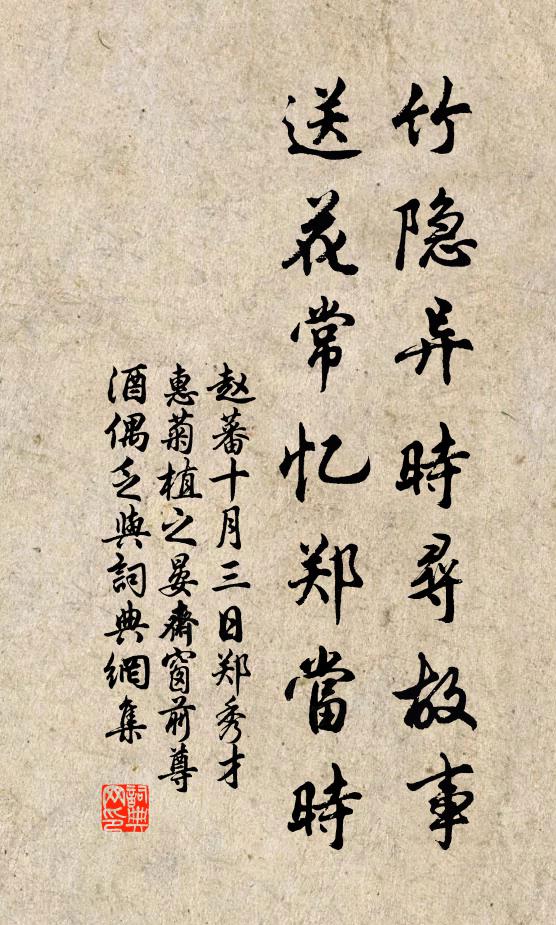 竹隐异時尋故事
送花常忆郑當時
赵蕃十月三日郑秀才
惠菊植之晏齋窗前尊
酒偶乏與詞典網集
詞典
网印